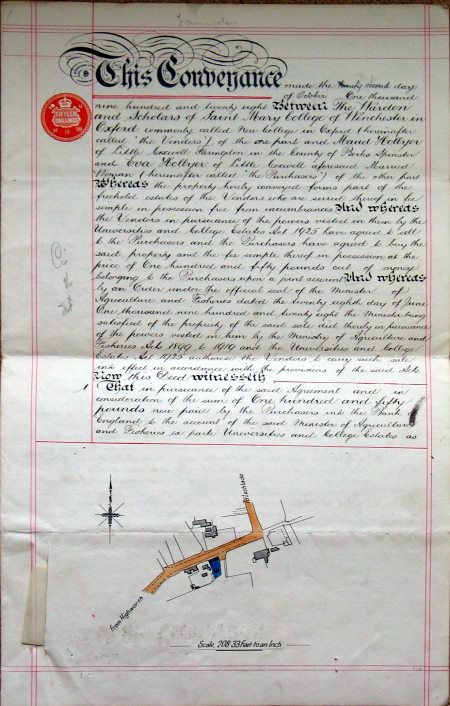 Faringdon
This Conveyance made the twenty second day
of October One thousand
nine hundred and twenty eight Between The Warden
and Scholars of Saint Mary College of Winchester in
Oxford commonly called New College in Oxford (hereinafter
called "the Vendors") of the one part and Maud Hollyer
of Little Coxwell Faringdon in the County of Berks Spinster
and Eva Hollyer of Little Coxwell aforesaid Married
Woman (hereinafter called "the Purchasers") of the other part
Whereas the property hereby conveyed forms part of the
freehold estates of the Vendors who are seized thereof in fee
simple in possession free from incumbrances And whereas
the Vendors in pursuance of the powers vested in them by the
Universities and College Estates Act 1925 have agreed to sell
to the Purchasers and the Purchasers have agreed to buy the
said property and the fee simple thereof in possession at the
price of One hundred and fifty pounds out of money
belonging to the Purchasers upon a joint account And whereas
by an Order under the official seal of the Minister of
Agriculture and Fisheries dated the twenty eighth day of June
One thousand nine hundred and twenty eight the Minister being
satisfied of the propriety of the said sale did thereby in pursuance
of the powers vested in him by the Ministry of Agriculture and
Fisheries Acts 1889 to 1919 and the Universities and College
Estates Act 1925 authorise the Vendors to carry such sale
into effect in accordance with the provisions of the said Acts
Now this Deed witnesseth
1 That in pursuance of the said Agreement and in
consideration of the sum of One hundred and fifty
pounds now paid by the Purchasers into the Bank of
England to the account of the said Minister of Agriculture
and Fisheries ex parte Universities and College Estates as
FIFTEEN
SHILLINGS
To Lechlade
From Highworth
Scale 208·33 Feet to an Inch